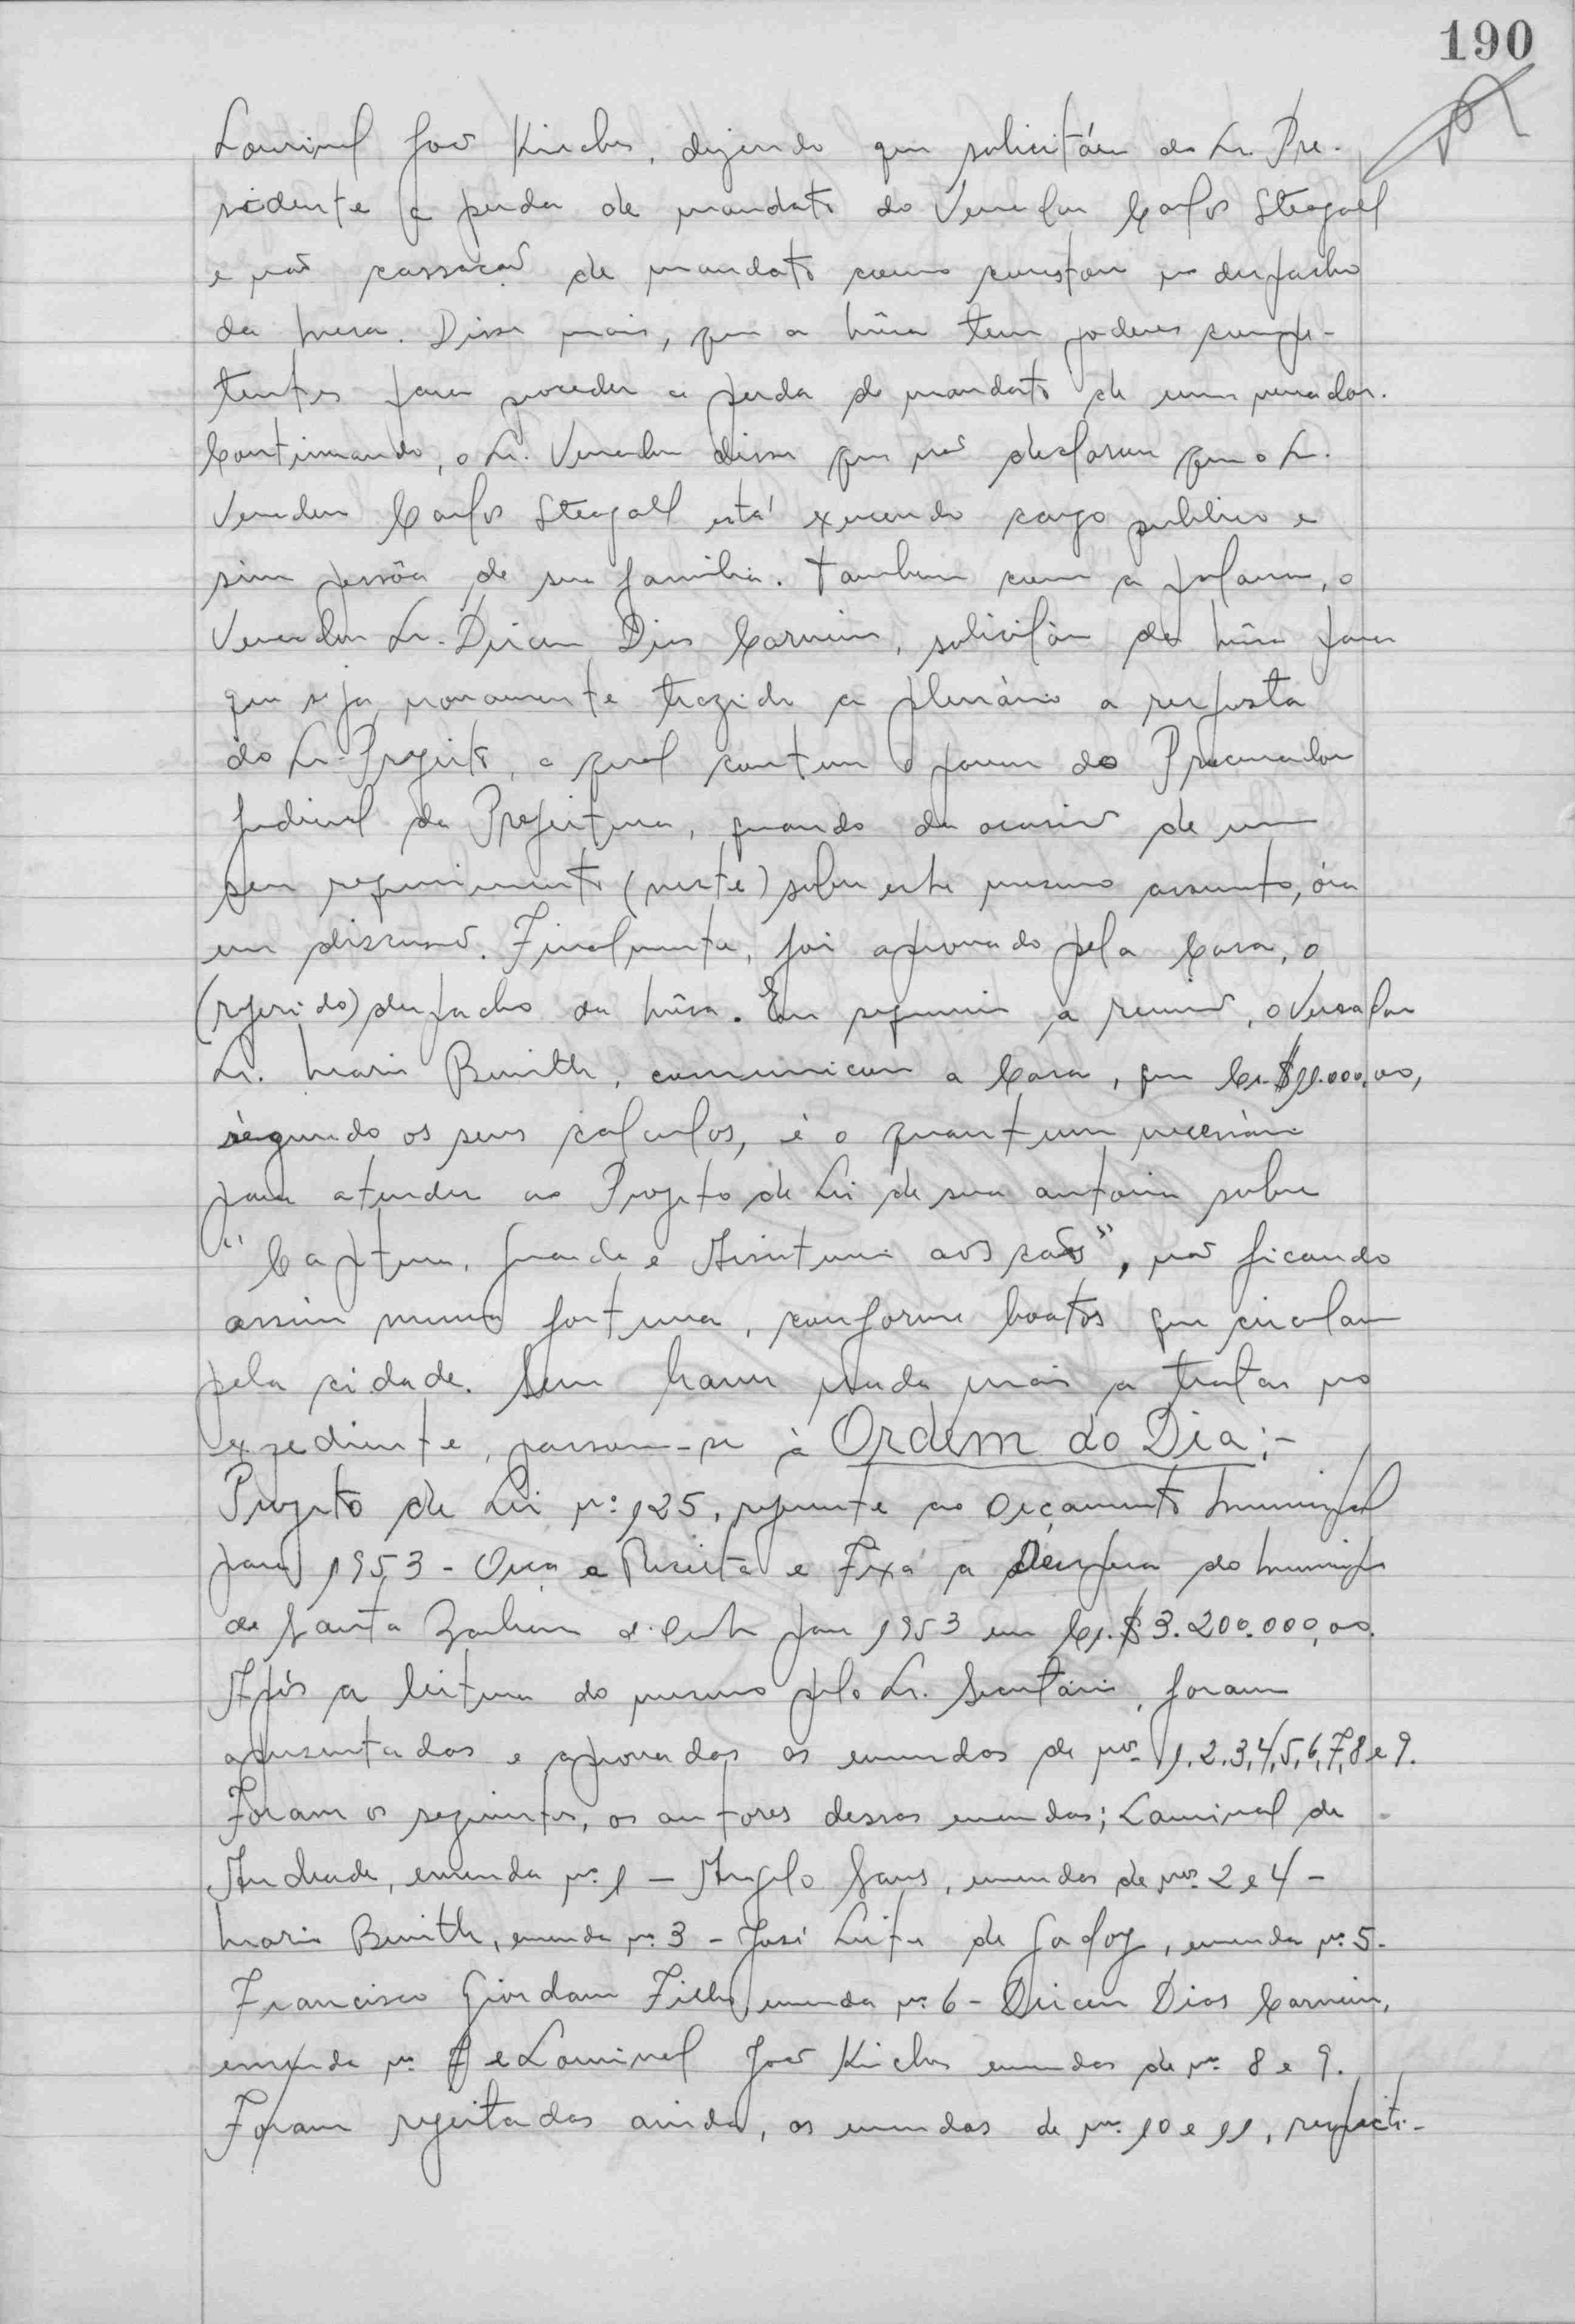 190
Lourival João Kirche, dizendo que solicitára do Sr. Pre-
sidente a perda de mandato do Vereador Carlos Steagall
e não cassação de mandato como constou no despacho
da mesa. Disse mais, que a mêsa tem poderes compe-
tentes para proceder a perda de mandato de um vereador.
Continuando, o Sr. Vereador disse que não declarou que o Sr.
Vereador Carlos Steagall está exercendo cargo publico e
sim pessôa de sua familia. Tambem com a palavra, o
Vereador Sr. Dirceu Dias Carneiro, solicitou da mêsa para
que seja novamente trazida a plenário a resposta
do Sr. Prefeito, a qual contem o parecer do Procurador
Judicial da Prefeitura, quando da ocasião de um
seu requerimento (neste) sobre este mesmo assunto, óra
em discussão. Finalmente, foi aprovado pela Casa, o
(referido) despacho da mêsa. Em seguimento a reunião, o Vereador
Sr. Mario , comunicou a Casa, que Cr.$ 11.000,00,
segundo os seus calculos, é o quantum necessário
para atender ao Projeto de Lei de sua autoria sobre
"Captura, guarda e Assistencia aos cães", não ficando
assim numa fortuna, conforme boatos que circulam
pela cidade. Sem haver nada mais a tratar no
expediente, passou-se à Ordem do Dia:-
Projeto de Lei nº 125, referente ao Orçamento Municipal
para 1953 - Orça a Receita e Fixa a Despesa do Municipio
de Santa Barbara d'Oeste para 1953 em Cr.$ 3.200.000,00.
Após a leitura do mesmo pelo Sr. Secretário, foram
apresentadas e aprovadas as emendas de nos. 1, 2, 3, 4, 5, 6, 7, 8 e 9.
Foram os seguintes, os autores dessas emendas; Lourival de
Andrade, emenda nº 1 - Angelo Sans, emendas de nos. 2 e 4 -
Mario , emenda nº 3 - José Leite de Godoy, emenda nº 5.
Francisco Giordano Filho emenda nº 6 - Dirceu Dias Carneiro,
emenda nº 7 e Lourival João Kirche emendas de nº 8 e 9.
Foram rejeitadas ainda, as emendas de nº 10 e 11, respecti-